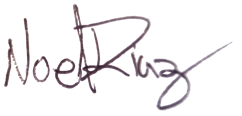 Noel Ruiz